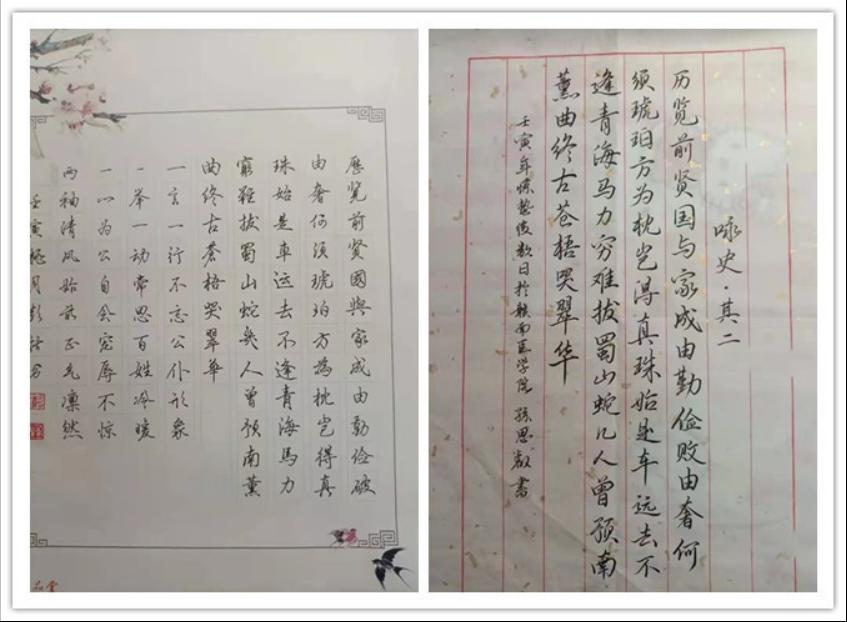 歷覽前賢國與家成由勤俭破
由奢何須琥珀方為枕豈得真
珠始是車远去不逢青海馬力
窮難拔蜀山蛇幾人曾預南薰
曲终古蒼梧哭翠華
一言一行不忘公仆形象
一举一动常思百姓冷暖
一心为公自会宠辱不惊
两袖清风始正气凛然
壬寅月彭
品堂
咏史·其二
历览前贤国与家成由勤俭败由奢何
须琥珀方为枕岂得真珠始是车远去不
逢青海马力穷难拔蜀山蛇几人曾预南
薰曲终古苍梧哭翠华
壬寅年惊蛰后数日于赣南医学院 孙思书